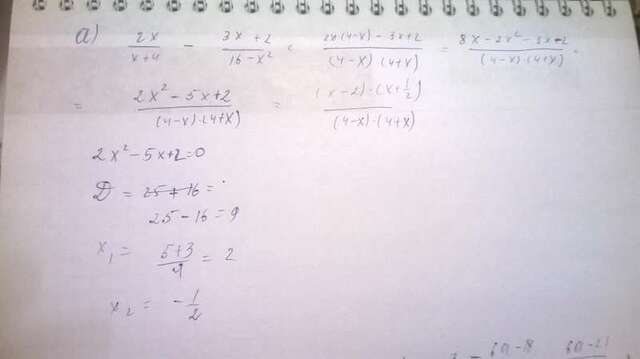 а) 2x/(x+4) - (3x+2)/(16-x²) = (2x(4-x)-3x+2)/((4-x)·(4+x)) = (8x-2x²-3x+2)/((4-x)·(4+x)) =
= (2x²-5x+2)/((4-x)·(4+x)) = ((x-2)·(x+1/2))/((4-x)·(4+x))
2x²-5x+2=0
D = 25+16 =
25-16=9
x₁ = (5+3)/4 = 2
x₂ = -1/2